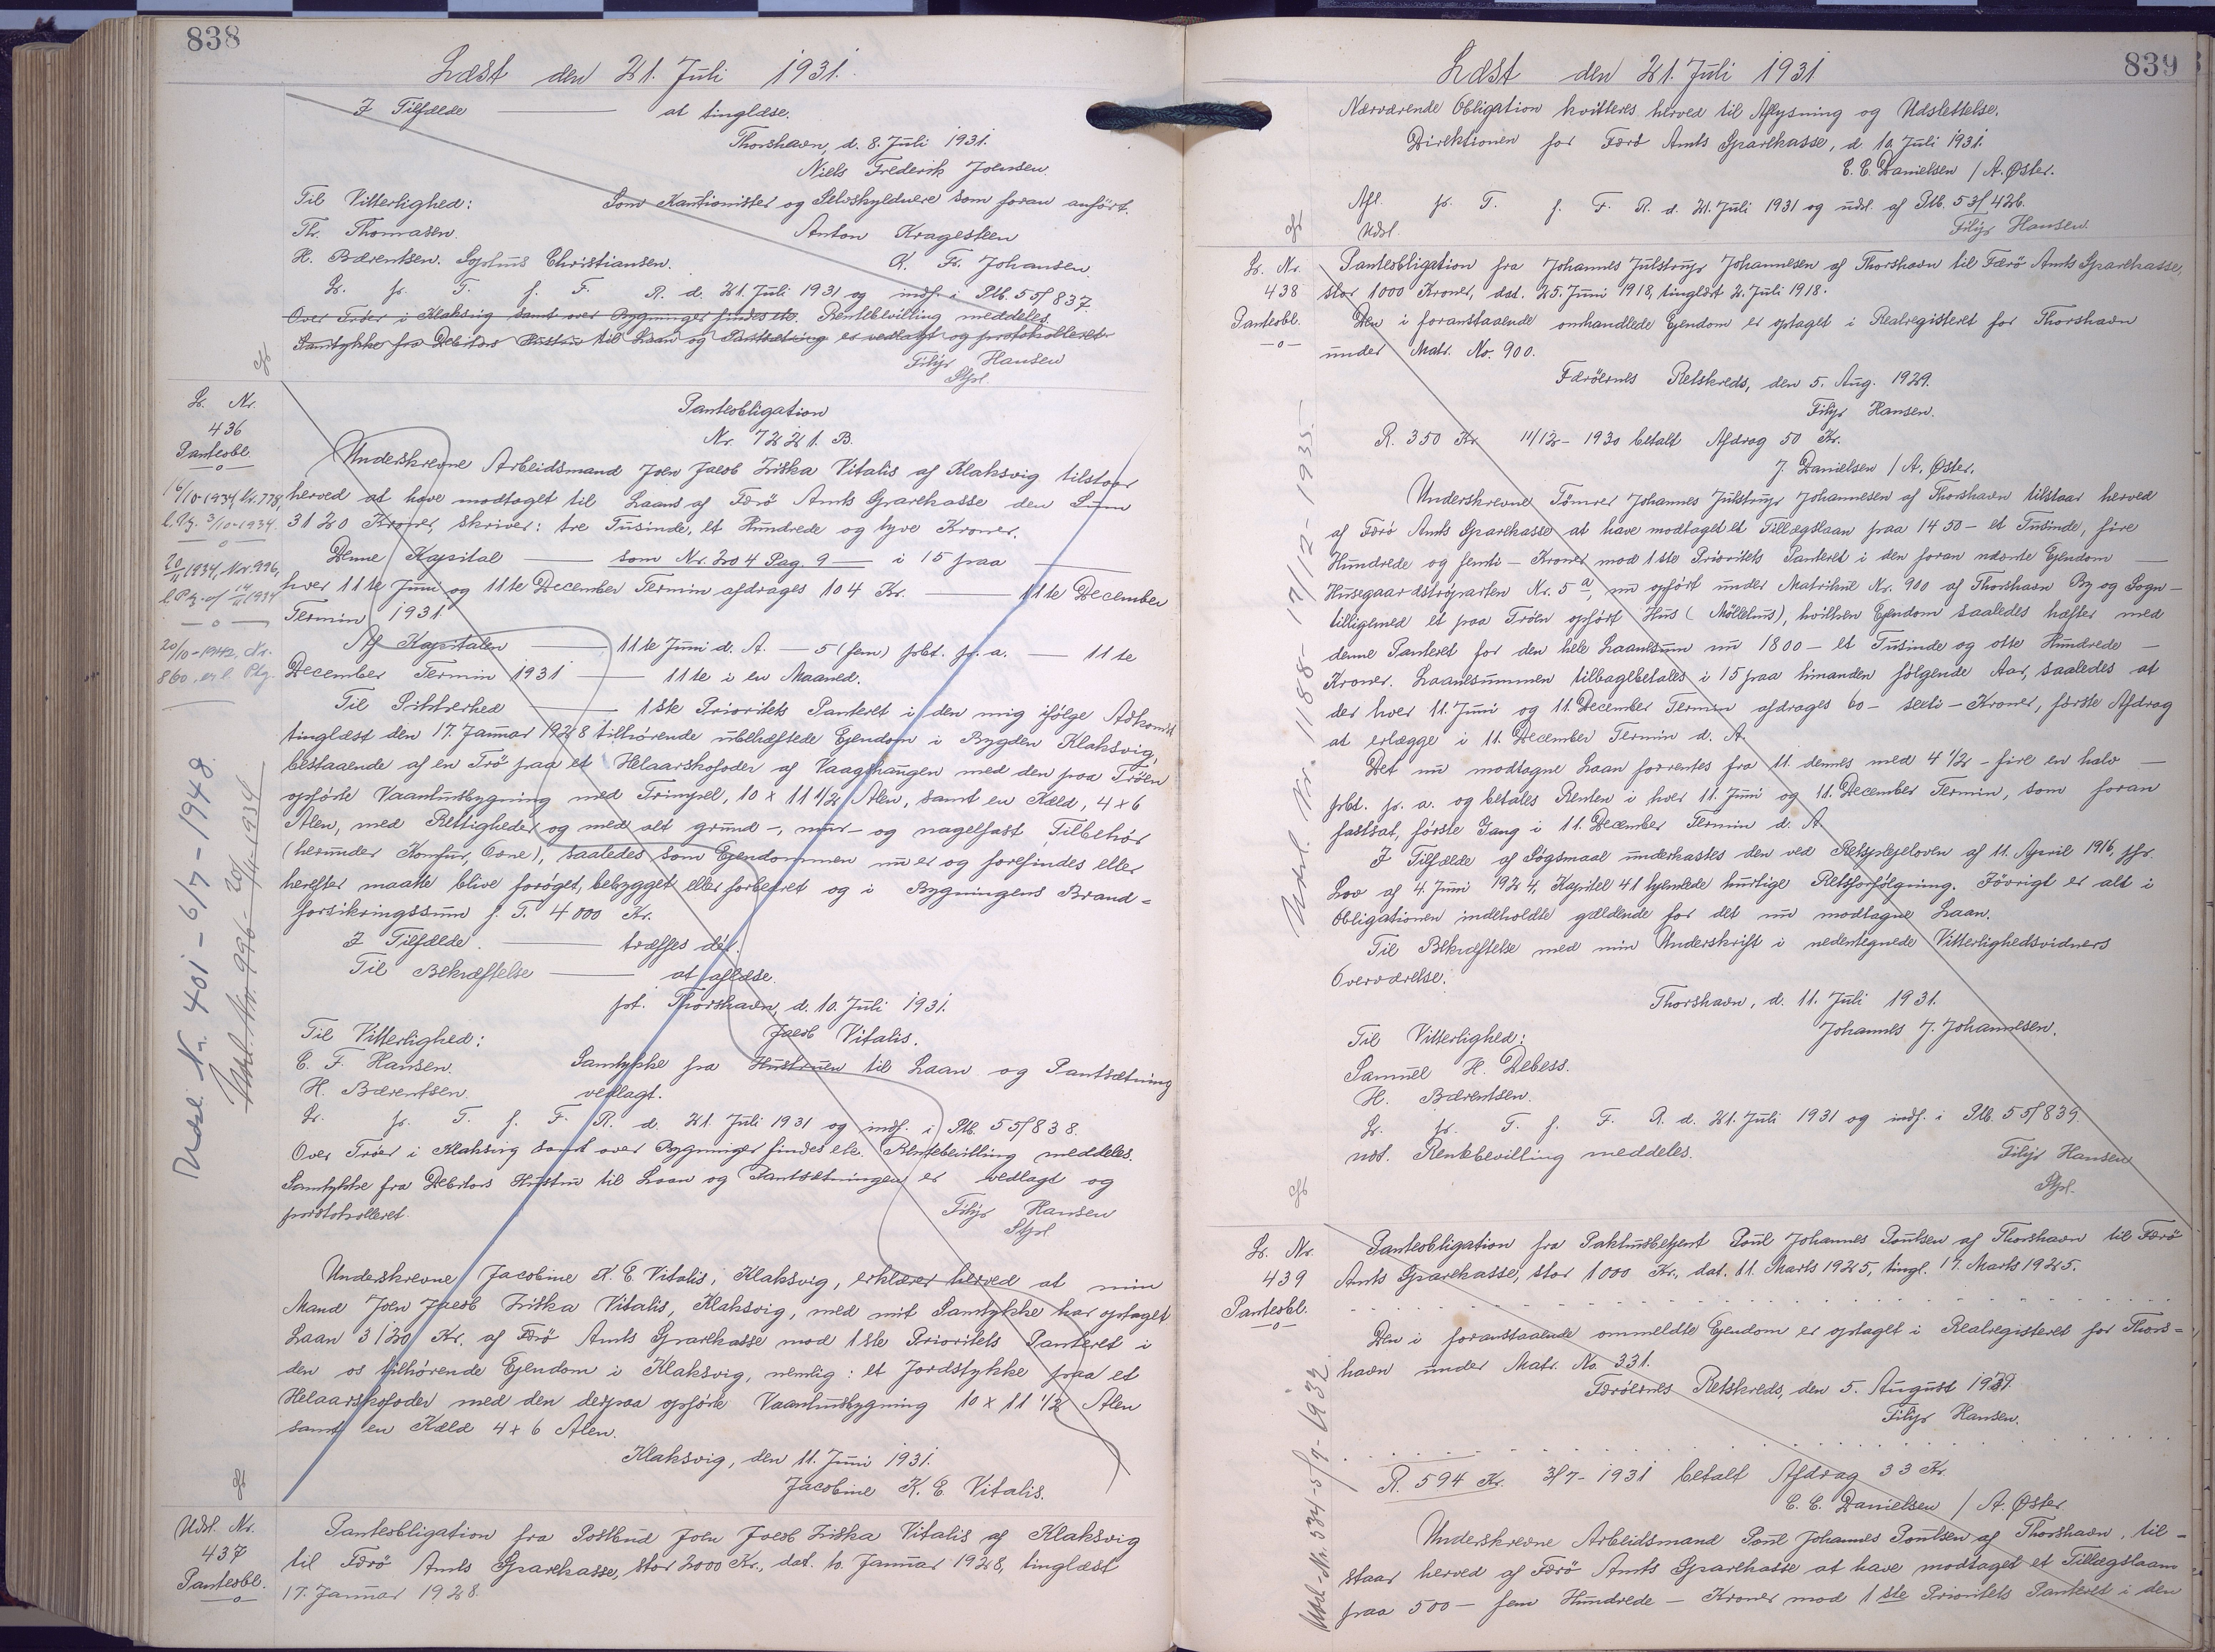 838
Læst den 21. Juli 1931.
I Tilfælde ——— at tinglæse.
Thorshavn, d. 8. Juli 1931.
Niels Frederik Joensen.
Til Vitterlighed: Som Kautionister og Selvskyldnere som foran anført.
Th. Thomasen. Anton Kragesteen
H. Bærentsen. Sophus Christiansen. K. Fr. Johansen.
L. p. T. f. F. R. d. 21. Juli 1931 og indf. i Ptb. 55/837.
Over Tröer i Klaksvig samt over Bygninger findes etc. Rentebevilling meddeles.
Samtykke fra Debitors Hustru til Laan og Pantsætning er vedlagt og protokolleret.
Filip Hansen
Stpl.
L. Nr.
436
Panteobl.
—o—
16/10-1934, Nr. 778,
l. Ptg. 3/10-1934.
—o—
20/11 1934, Nr. 996,
l. Ptg. af 14/11 1934
—o—
20/10-1942, Nr.
860, erl. Ptg.
Udsl. Nr. 401 - 6/7 - 1948.
Udsl. Nr. 996 - 20/11 1934
Panteobligation
Nr. 7221. B.
Underskrevne Arbeidsmand Joen Jacob Ziska Vitalis af Klaksvig tilstaar
herved at have modtaget til Laans af Færö Amts Sparekasse den Sum
3120 Kroner, skriver: tre Tusinde, et Hundrede og tyve Kroner.
Denne Kapital ——— som Nr. 204 Pag. 9 — i 15 paa ———
hver 11te Juni og 11te December Termin afdrages 104 Kr. ——— 11te December
Termin 1931.
Af Kapitalen ——— 11te Juni d. A. — 5 (fem) pCt. p. a. — 11te
December Termin 1931 ——— 11te i en Maaned.
Til Sikkerhed ——— 1ste Prioritets Panteret i den mig ifølge Adkomst
tinglæst den 17. Januar 1928 tilhørende ubehæftede Ejendom i Bygden Klaksvig,
bestaaende af en Trö paa et Helaarskofoder af Vaagshaugen med den paa Tröen
opførte Vaanhusbygning med Trimpel, 10 x 11 1/2 Alen, samt en Kæld, 4 x 6
Alen, med Rettigheder og med alt grund-, mur- og nagelfast Tilbehør
(herunder Komfur, Ovne), saaledes som Ejendommen nu er og forefindes eller
herefter maatte blive forøget, bebygget eller forbedret og i Bygningens Brand-
forsikringssum p. T. 4000 Kr.
I Tilfælde. ——— træffes dér.
Til Bekræftelse ——— at aflæse.
pt. Thorshavn, d. 10. Juli 1931.
Til Vitterlighed: Jacob Vitalis.
C. F. Hansen. Samtykke fra Hustruen til Laan og Pantsætning
H. Bærentsen. vedlagt.
L. p. T. f. F. R. d. 21. Juli 1931 og indf. i Ptb. 55/838.
Over Tröer i Klaksvig samt over Bygninger findes etc. Rentebevilling meddeles.
Samtykke fra Debitors Hustru til Laan og Pantsætningen er vedlagt og
protokolleret. Filip Hansen
Stpl
Underskrevne Jacobine K. E. Vitalis, Klaksvig, erklærer herved at min
Mand Joen Jacob Ziska Vitalis, Klaksvig, med mit Samtykke har optaget
Laan 3120 Kr. af Færö Amts Sparekasse mod 1ste Prioritets Panteret i
den os tilhørende Ejendom i Klaksvig, nemlig: et Jordstykke paa et
Helaarskofoder med den derpaa opførte Vaanhusbygning 10 x 11 1/2 Alen
samt en Kæld 4 x 6 Alen.
Klaksvig, den 11. Juni 1931.
Jacobine K. E. Vitalis.
Udsl. Nr.
437
Panteobl.
—o—
Panteobligation fra Postbud Joen Jacob Ziska Vitalis af Klaksvig
til Færö Amts Sparekasse, stor 2000 Kr., dat. 10. Januar 1928, tinglæst
17. Januar 1928.
839
Læst den 21. Juli 1931
Nærværende Obligation kvitteres herved til Aflysning og Udslettelse.
Direktionen for Færö Amts Sparekasse, d. 10. Juli 1931.
C. C. Danielsen / A. Øster.
Afl. p. T. f. F. R. d. 21. Juli 1931 og udsl. af Ptb. 53/426.
Udsl. Filip Hansen.
L. Nr.
438
Panteobl.
—o—
Udsl. Nr. 1188 - 17/12 - 1935.
Panteobligation fra Johannes Julstrup Johannesen af Thorshavn til Færö Amts Sparekasse,
stor 1000 Kroner, dat. 25. Juni 1918, tinglæst 2. Juli 1918.
Den i foranstaaende omhandlede Ejendom er optaget i Realregisteret for Thorshavn
under Matr. No. 900.
Færöernes Retskreds, den 5. Aug. 1929.
Filip Hansen.
R. 350 Kr. 11/12 - 1930 betalt Afdrag 50 Kr.
J. Danielsen / A. Øster.
Underskrevne Tömrer Johannes Julstrup Johannesen af Thorshavn tilstaar herved
af Færö Amts Sparekasse at have modtaget et Tillægslaan paa 1450 - et Tusinde, fire
Hundrede og femti - Kroner mod 1ste Prioritets Panteret i den foran nævnte Ejendom —
Husegaardströparten Nr. 5a, nu opført under Matrikul Nr. 900 af Thorshavn By og Sogn -
tilligemed et paa Tröen opført Hus (Möllehus), hvilken Ejendom saaledes hæfter med
denne Panteret for den hele Laanesum nu 1800 - et Tusinde og otte Hundrede -
Kroner. Laanesummen tilbagebetales i 15 paa hinanden følgende Aar, saaledes at
der hver 11. Juni og 11. December Termin afdrages 60 - sexti - Kroner, første Afdrag
at erlægge i 11. December Termin d. A.
Det nu modtagne Laan forrentes fra 11. dennes med 4 1/2 - fire en halv —
pCt. p. a. og betales Renten i hver 11. Juni og 11. December Termin, som foran
fastsat, første Gang i 11. December Termin d. A.
I Tilfælde af Søgsmaal underkastes den ved Retsplejeloven af 11. April 1916, jfr.
Lov af 4. Juni 1924, Kapitel 41 hjemlede hurtige Retsforfölgning. Iövrigt er alt i
Obligationen indeholdte gældende for det nu modtagne Laan.
Til Bekræftelse med min Underskrift i nedentegnede Vitterlighedsvidners
Overværelse.
Thorshavn, d. 11. Juli 1931.
Til Vitterlighed: Johannes J. Johannesen.
Samuel H. Debess.
H. Bærentsen.
L. p. T. f. F. R. d. 21. Juli 1931 og indf. i Ptb. 55/839.
udst. Rentebevilling meddeles. Filip Hansen
Stpl.
L. Nr.
439
Panteobl.
—o—
Udsl. Nr. 534 - 5/9 - 1932.
Panteobligation fra Pakhusbetjent Poul Johannes Poulsen af Thorshavn til Færö
Amts Sparekasse, stor 1000 Kr., dat. 11. Marts 1925, tingl. 17. Marts 1925.
Den i foranstaaende ommeldte Ejendom er optaget i Realregisteret for Thors-
havn under Matr. No. 331.
Færöernes Retskreds, den 5. August 1929.
Filip Hansen.
R. 594 Kr. 3/7 - 1931 betalt Afdrag 33 Kr.
C. C. Danielsen / A. Øster.
Underskrevne Arbeidsmand Poul Johannes Poulsen af Thorshavn, til-
staar herved af Færö Amts Sparekasse at have modtaget et Tillægslaan
paa 500 - fem Hundrede - Kroner mod 1ste Prioritets Panteret i den